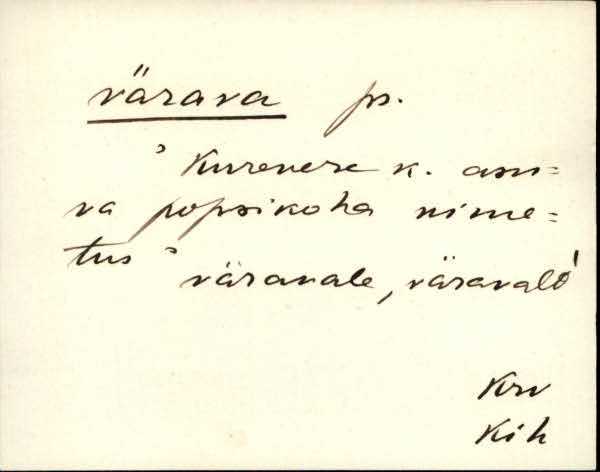 värava ps.
᾽ Kurevere k. asu=
va popsikoha nime=
tus ᾽
väravale, väravalò
Krv
Kih